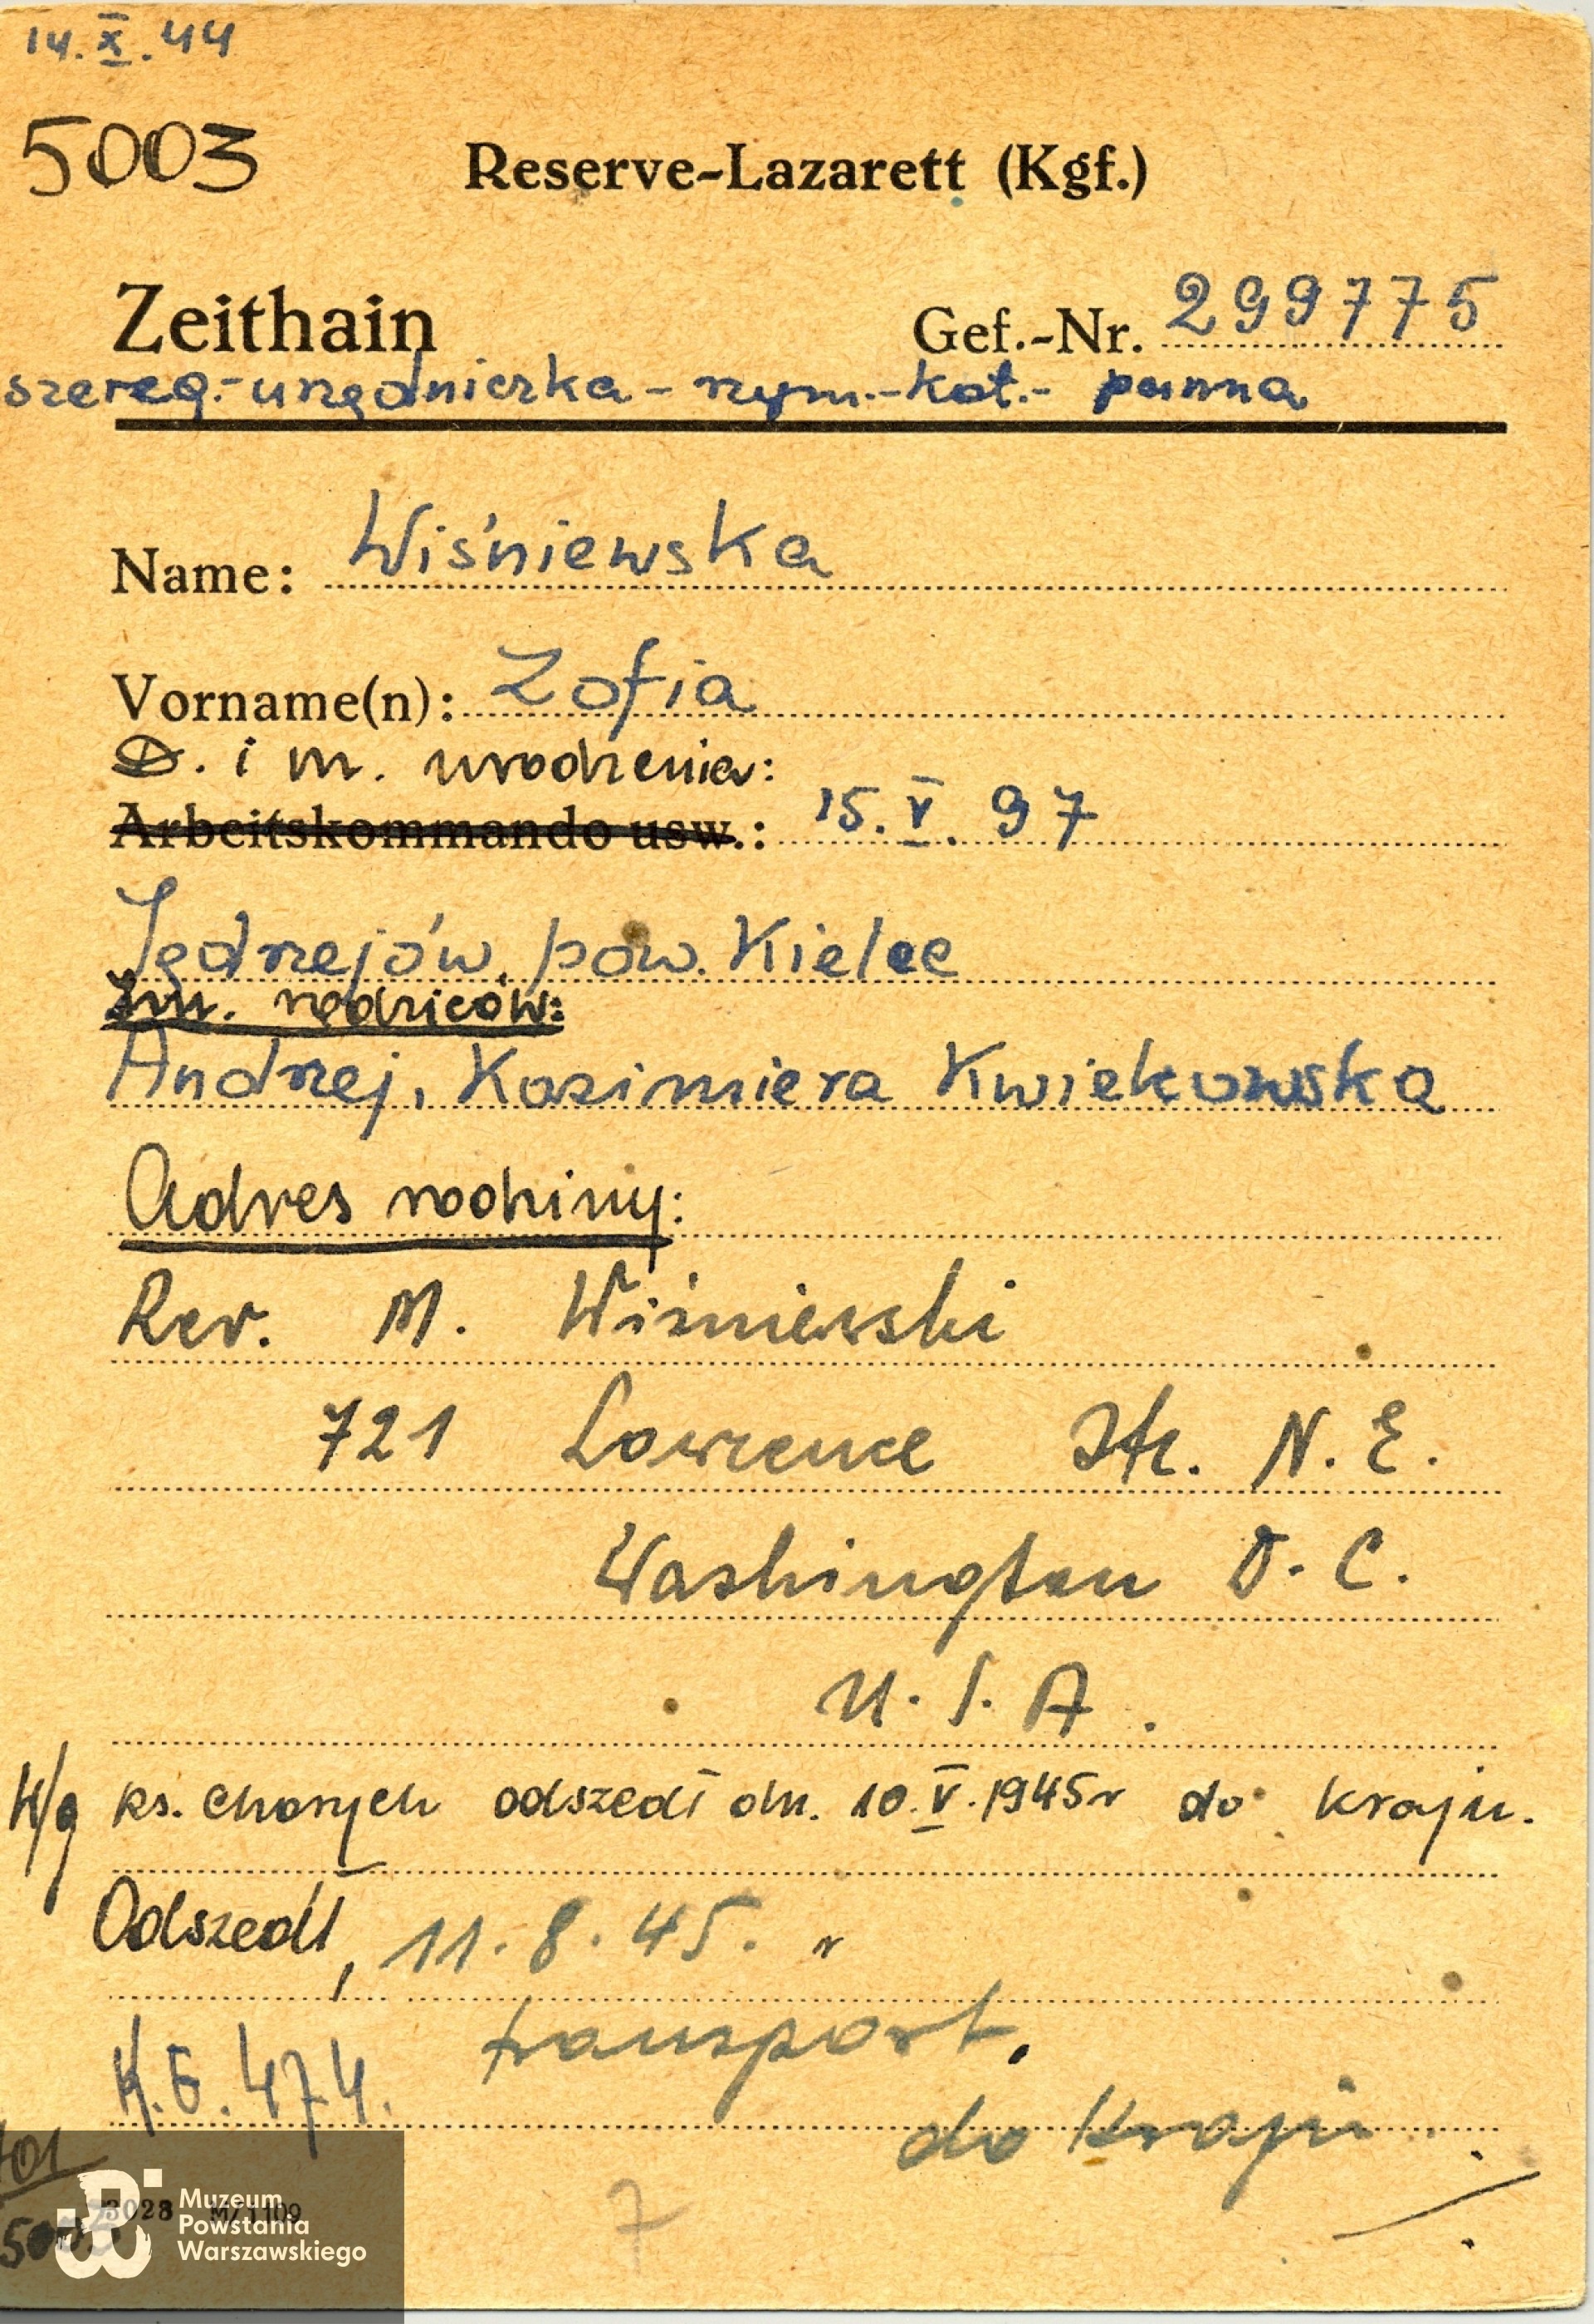 14.X.44
5003
Reserve-Lazarett (Kgf.)
Zeithain Gef.-Nr. 299775
szereg.-urzędniczka - rzym.-kat.- panna
Name: Wiśniewska
Vorname(n): Zofia
D. i m. urodzenia:
Arbeitskommando usw.: 15.V.97
Jędrzejów, pow. Kielce
Im. rodziców:
Andrzej, Kazimiera Kwiekowska
Adres rodziny:
Rev. M. Wiśniewski
721 Lawrence Str. N.E.
Washington D.C.
U.S.A.
W/g ks. chorych odszedł dn. 10.V.1945r do kraju.
Odszedł, 11.8.45. r
transport.
K.G.474.
do Kraju
101
5003
3028 M/1109
7
Muzeum
Powstania
Warszawskiego